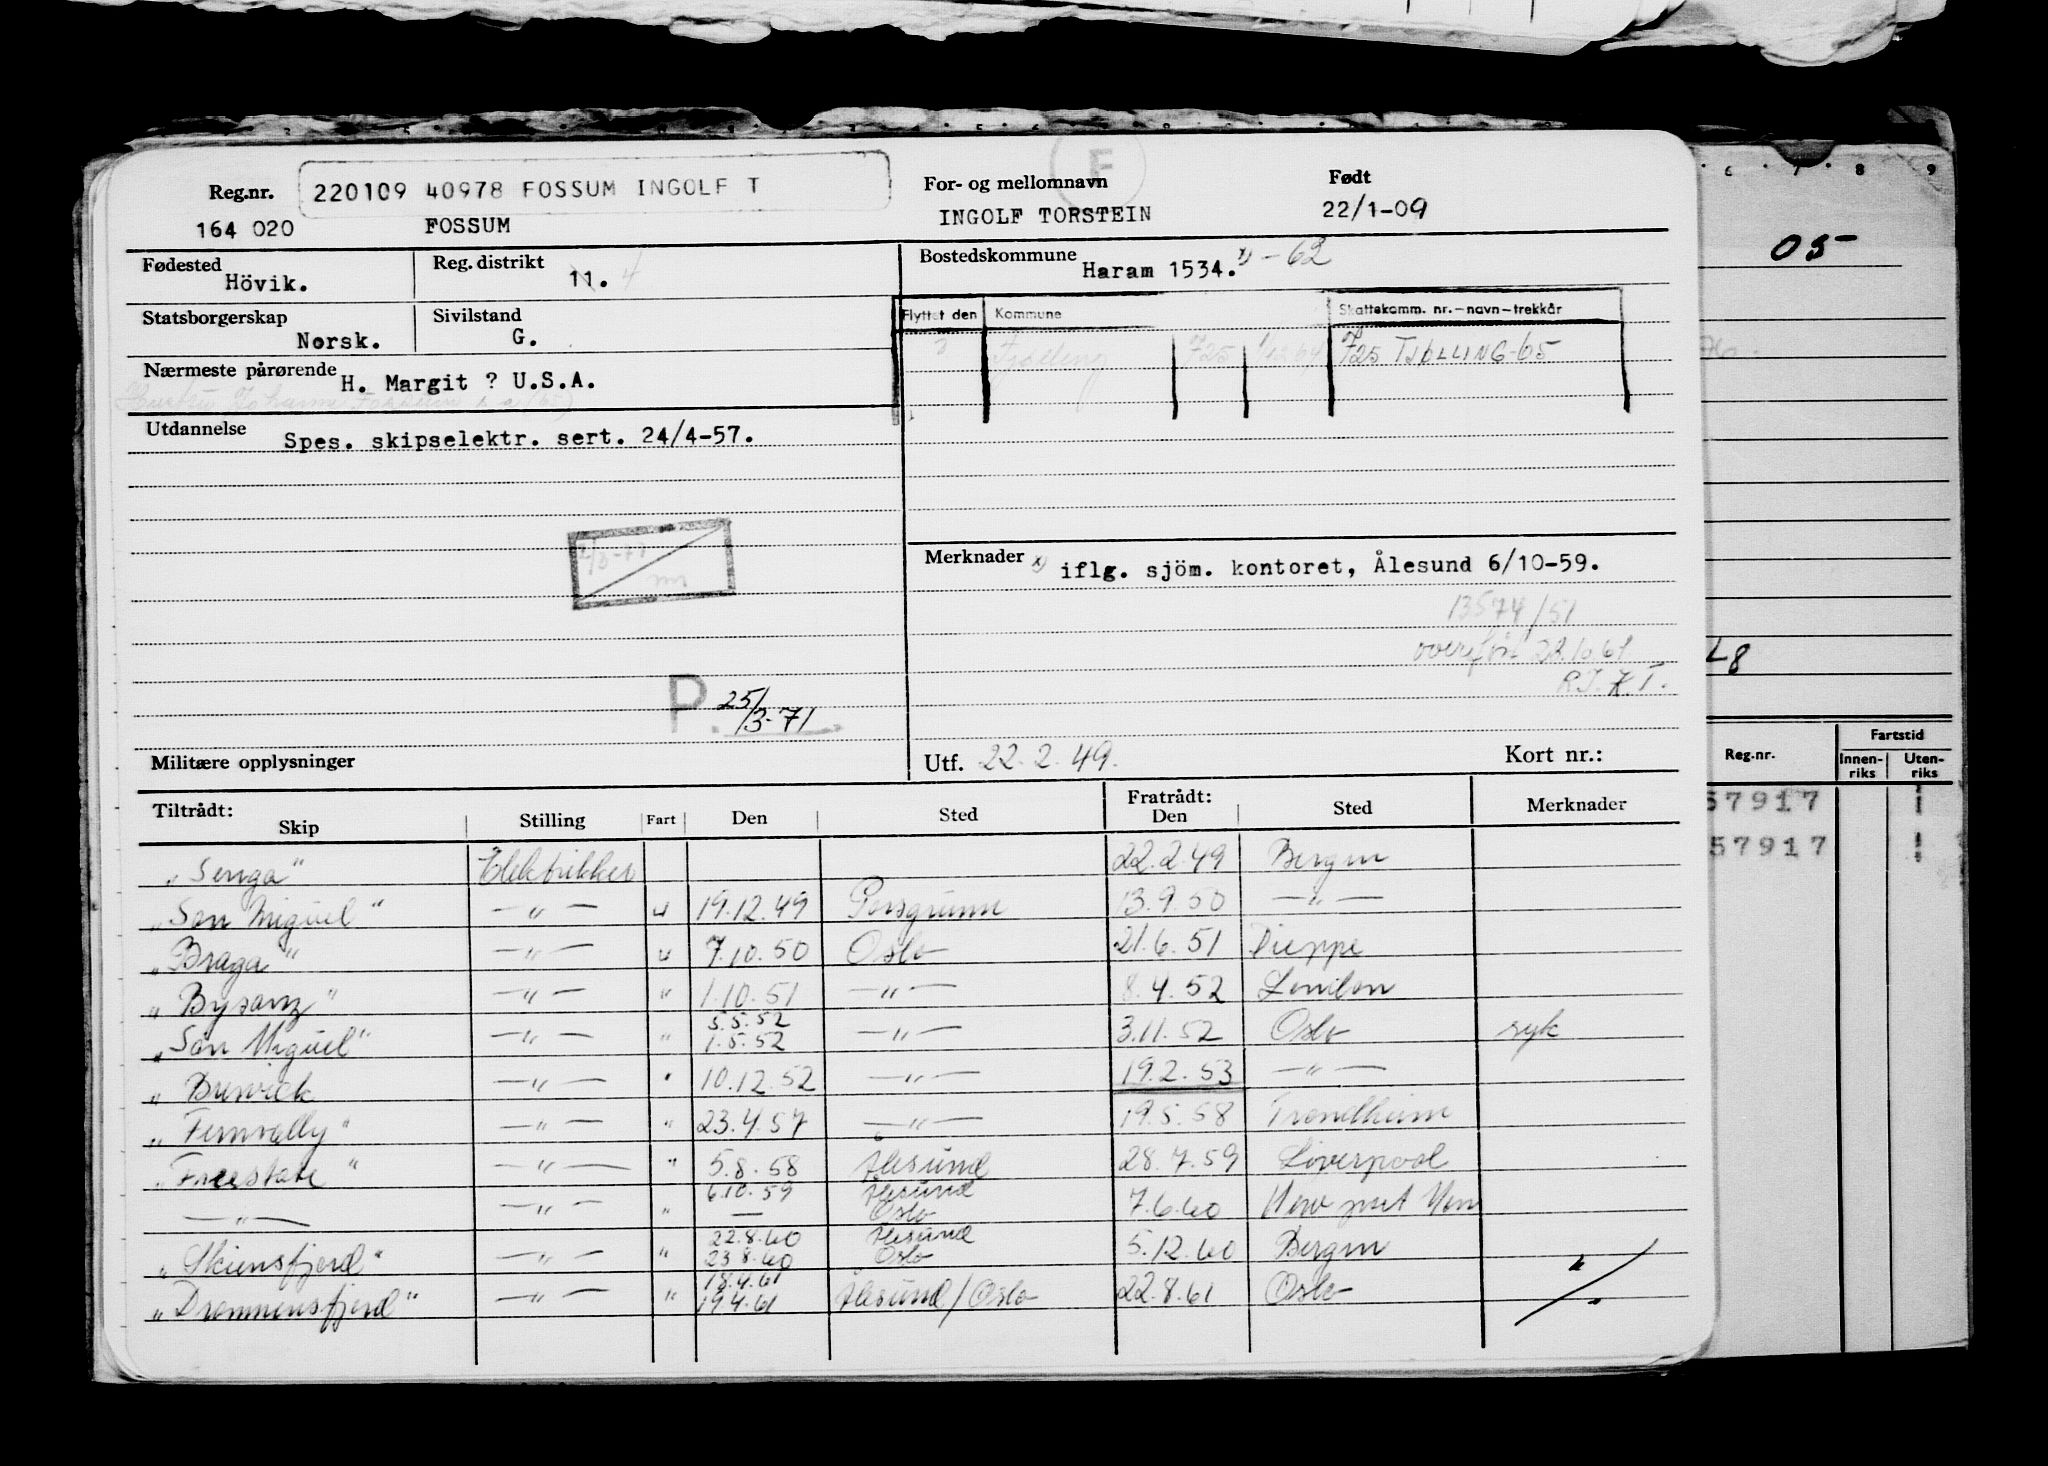 Reg.nr. 220109 40978 FOSSUM INGOLF T
164 020 FOSSUM
For- og mellomnavn
INGOLF TORSTEIN
Født
22/1-09
Fødested
Hövik.
Reg. distrikt
11. 4
Bostedskommune
Haram 1534. x) -62
Statsborgerskap
Norsk.
Sivilstand
G.
Flyttet den Kommune Skattekomm. nr.-navn-trekkår
Tjølling 725 725 TJØLLING-65
Nærmeste pårørende H. Margit ? U.S.A.
Johanne Fossum
Utdannelse Spes. skipselektr. sert. 24/4-57.
Merknader x) iflg. sjöm. kontoret, Ålesund 6/10-59.
13574/51
overført 22.10.61
P. 25/3-71
Militære opplysninger
Utf. 22.2.49.
Kort nr.:
Tiltrådt: Skip Stilling Fart Den Sted Fratrådt: Den Sted Merknader
"Senga" Elektrikker 22.2.49 Bergen
"San Miguel" —"— u 19.12.49 Porsgrunn 13.9.50 —"—
"Braga" —"— u 7.10.50 Oslo 21.6.51 Dieppe
"Bysanz" —"— " 1.10.51 —"— 8.4.52 London
"San Miguel" —"— " 5.5.52 1.5.52 —"— 3.11.52 Oslo syk
"Buswick —"— " 10.12.52 —"— 19.2.53 —"—
"Fernvally" —"— " 23.4.57 —"— 19.5.58 Trondheim
"Freestate" —"— " 5.8.58 Ålesund 28.7.59 Liverpool
—"— —"— " 6.10.59 — Ålesund Oslo 7.6.60 New port
"Skiensfjord" —"— " 22.8.60 23.8.60 Ålesund Oslo 5.12.60 Bergen
"Drammensfjord" —"— " 18.4.61 19.4.61 Ålesund/Oslo 22.8.61 Oslo
6 7 8 9
05
L8
Reg.nr. Fartstid
Innen-riks Uten-riks
57917
57917